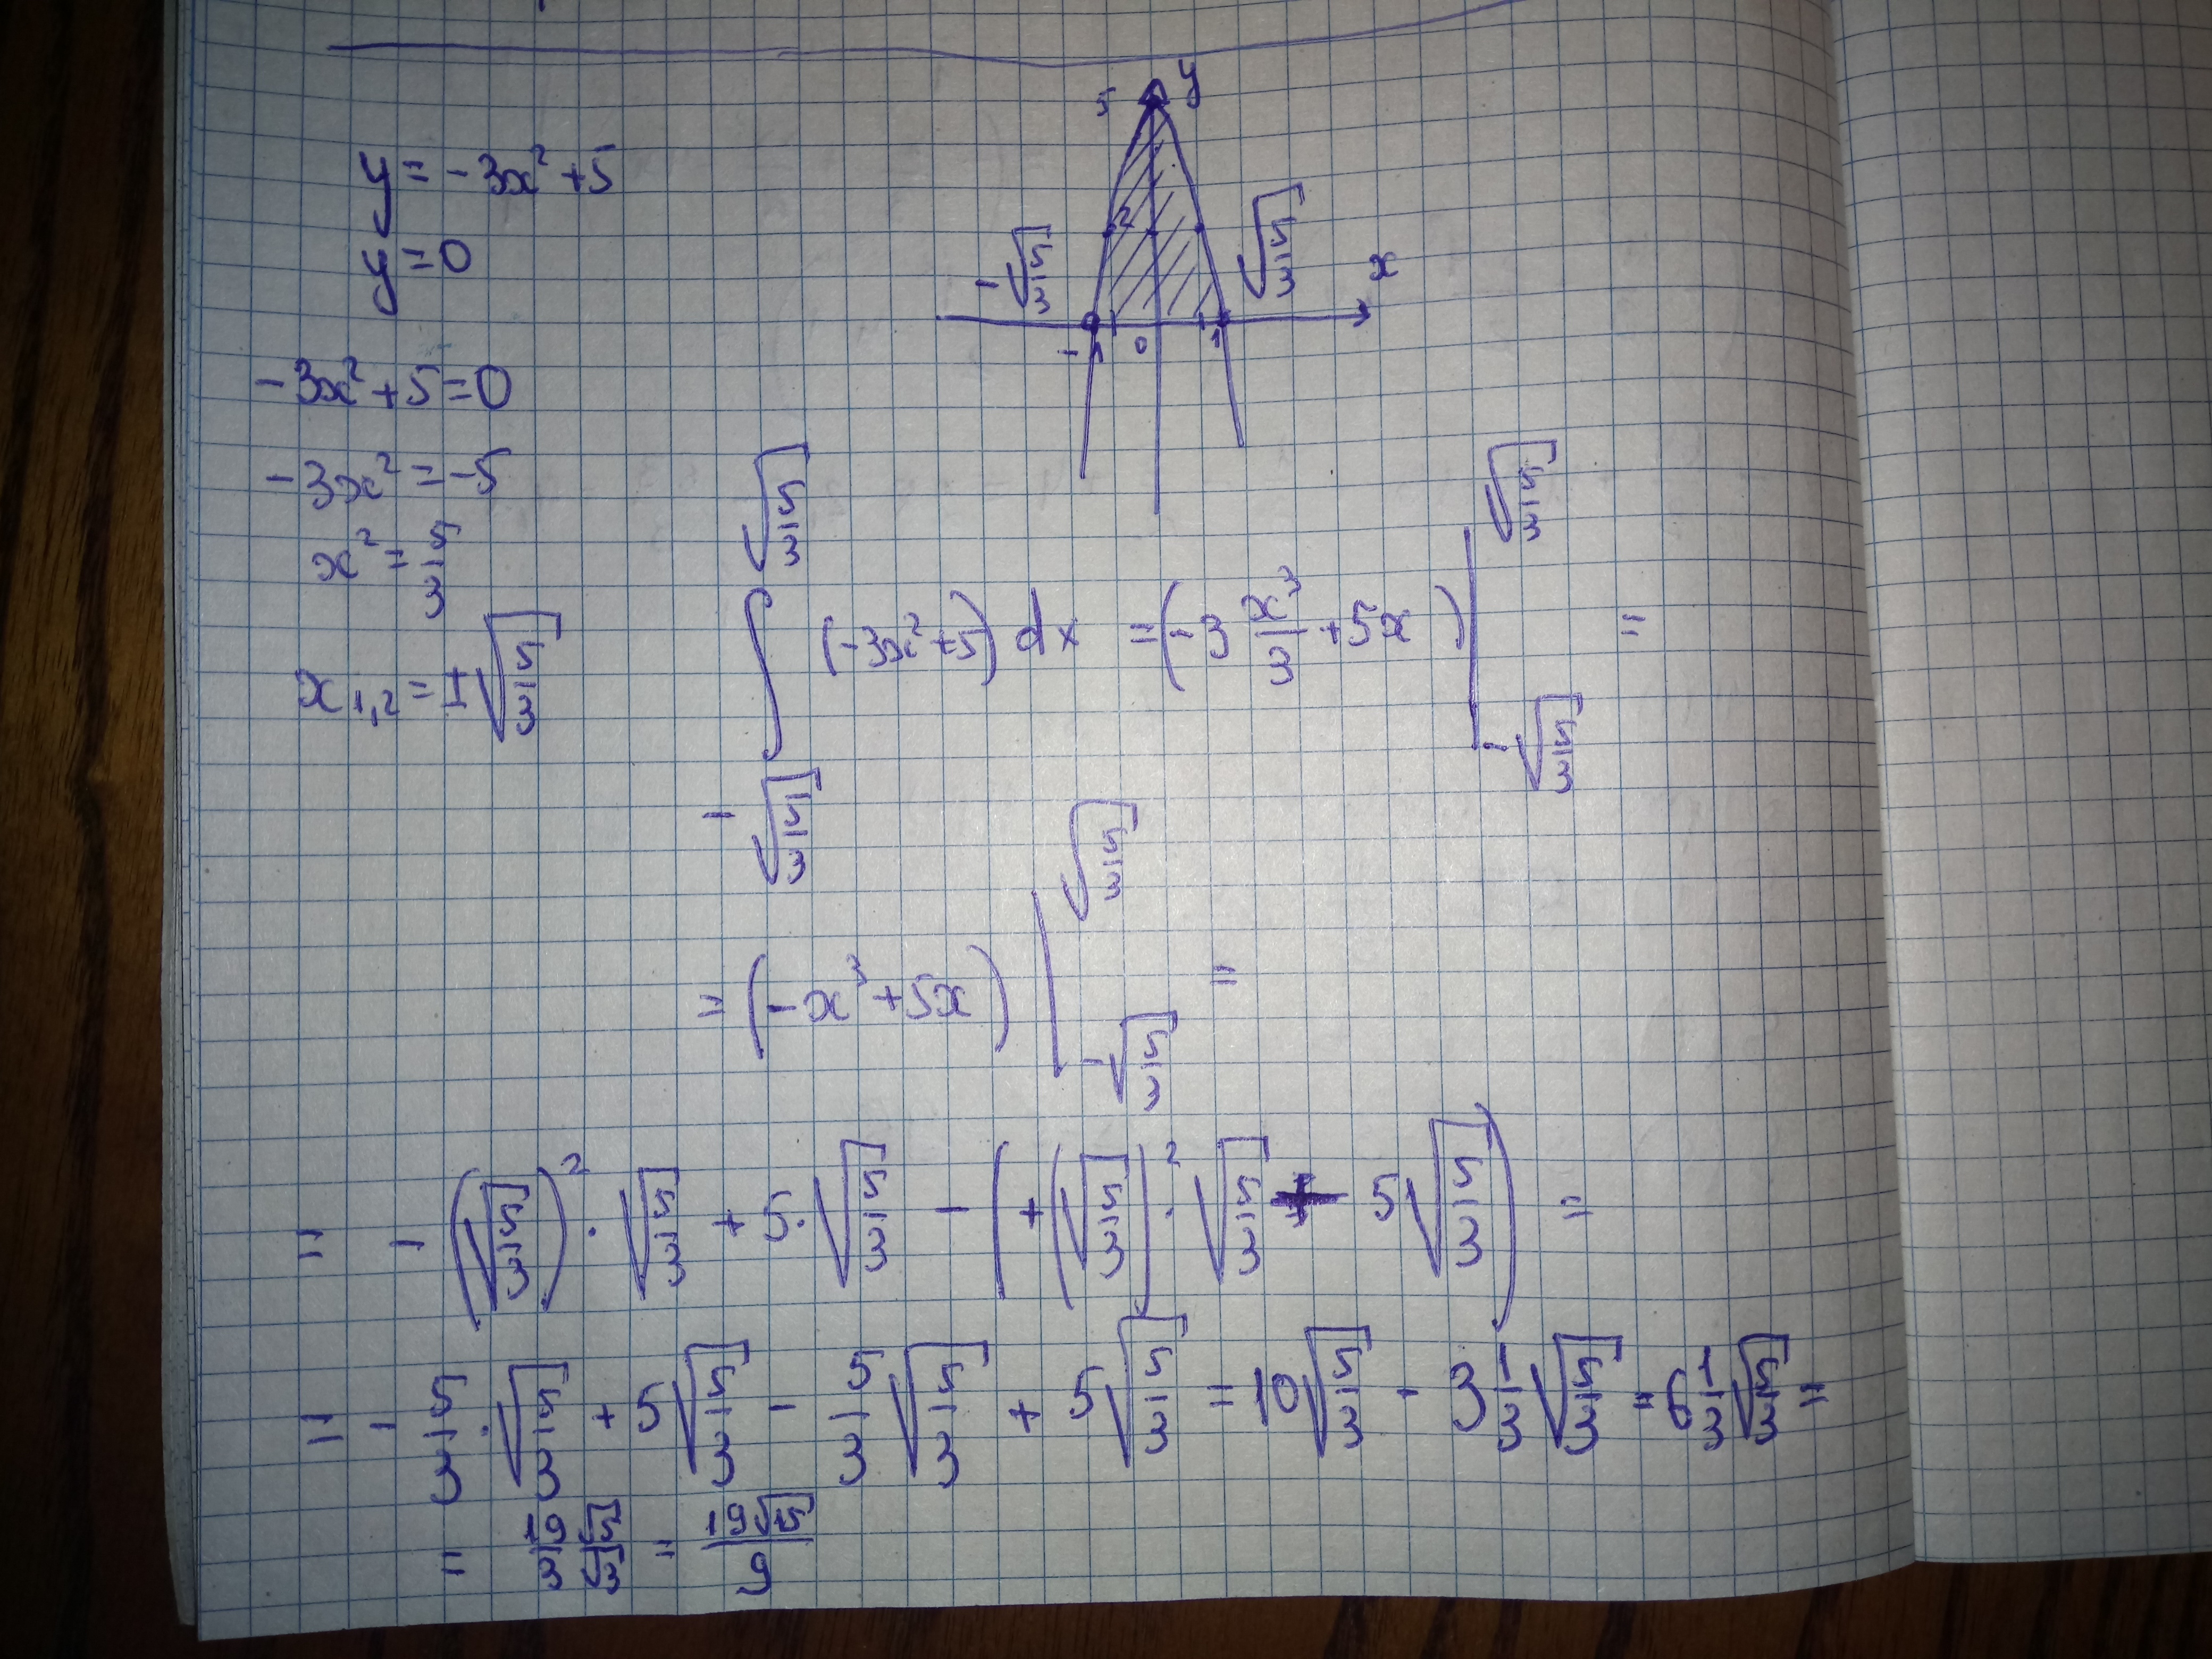 y = -3x² + 5
y = 0
-3x² + 5 = 0
-3x² = -5
x² = 5/3
x₁,₂ = ±√(5/3)
5 y
2
-√(5/3) √(5/3) x
-1 0 1
∫_{-√(5/3)}^{√(5/3)} (-3x² + 5) dx = (-3 x³/3 + 5x) |_{-√(5/3)}^{√(5/3)} =
= (-x³ + 5x) |_{-√(5/3)}^{√(5/3)} =
= -(√(5/3))² · √(5/3) + 5 · √(5/3) - (+(√(5/3))² · √(5/3) + 5√(5/3)) =
= -5/3 · √(5/3) + 5√(5/3) - 5/3 √(5/3) + 5√(5/3) = 10√(5/3) - 3 1/3 √(5/3) = 6 1/3 √(5/3) =
= 19/3 √5/√3 = 19√15/9